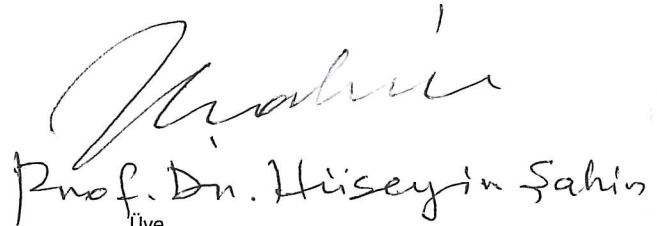 Prof. Dr. Hüseyin Şahin
Üye